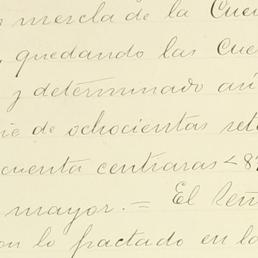 mezcla de la Cue
, quedando las Cue
y determinado así
ie de ochocientas set
cuenta centiaras <8
mayor. = El Señ
on lo pactado en la